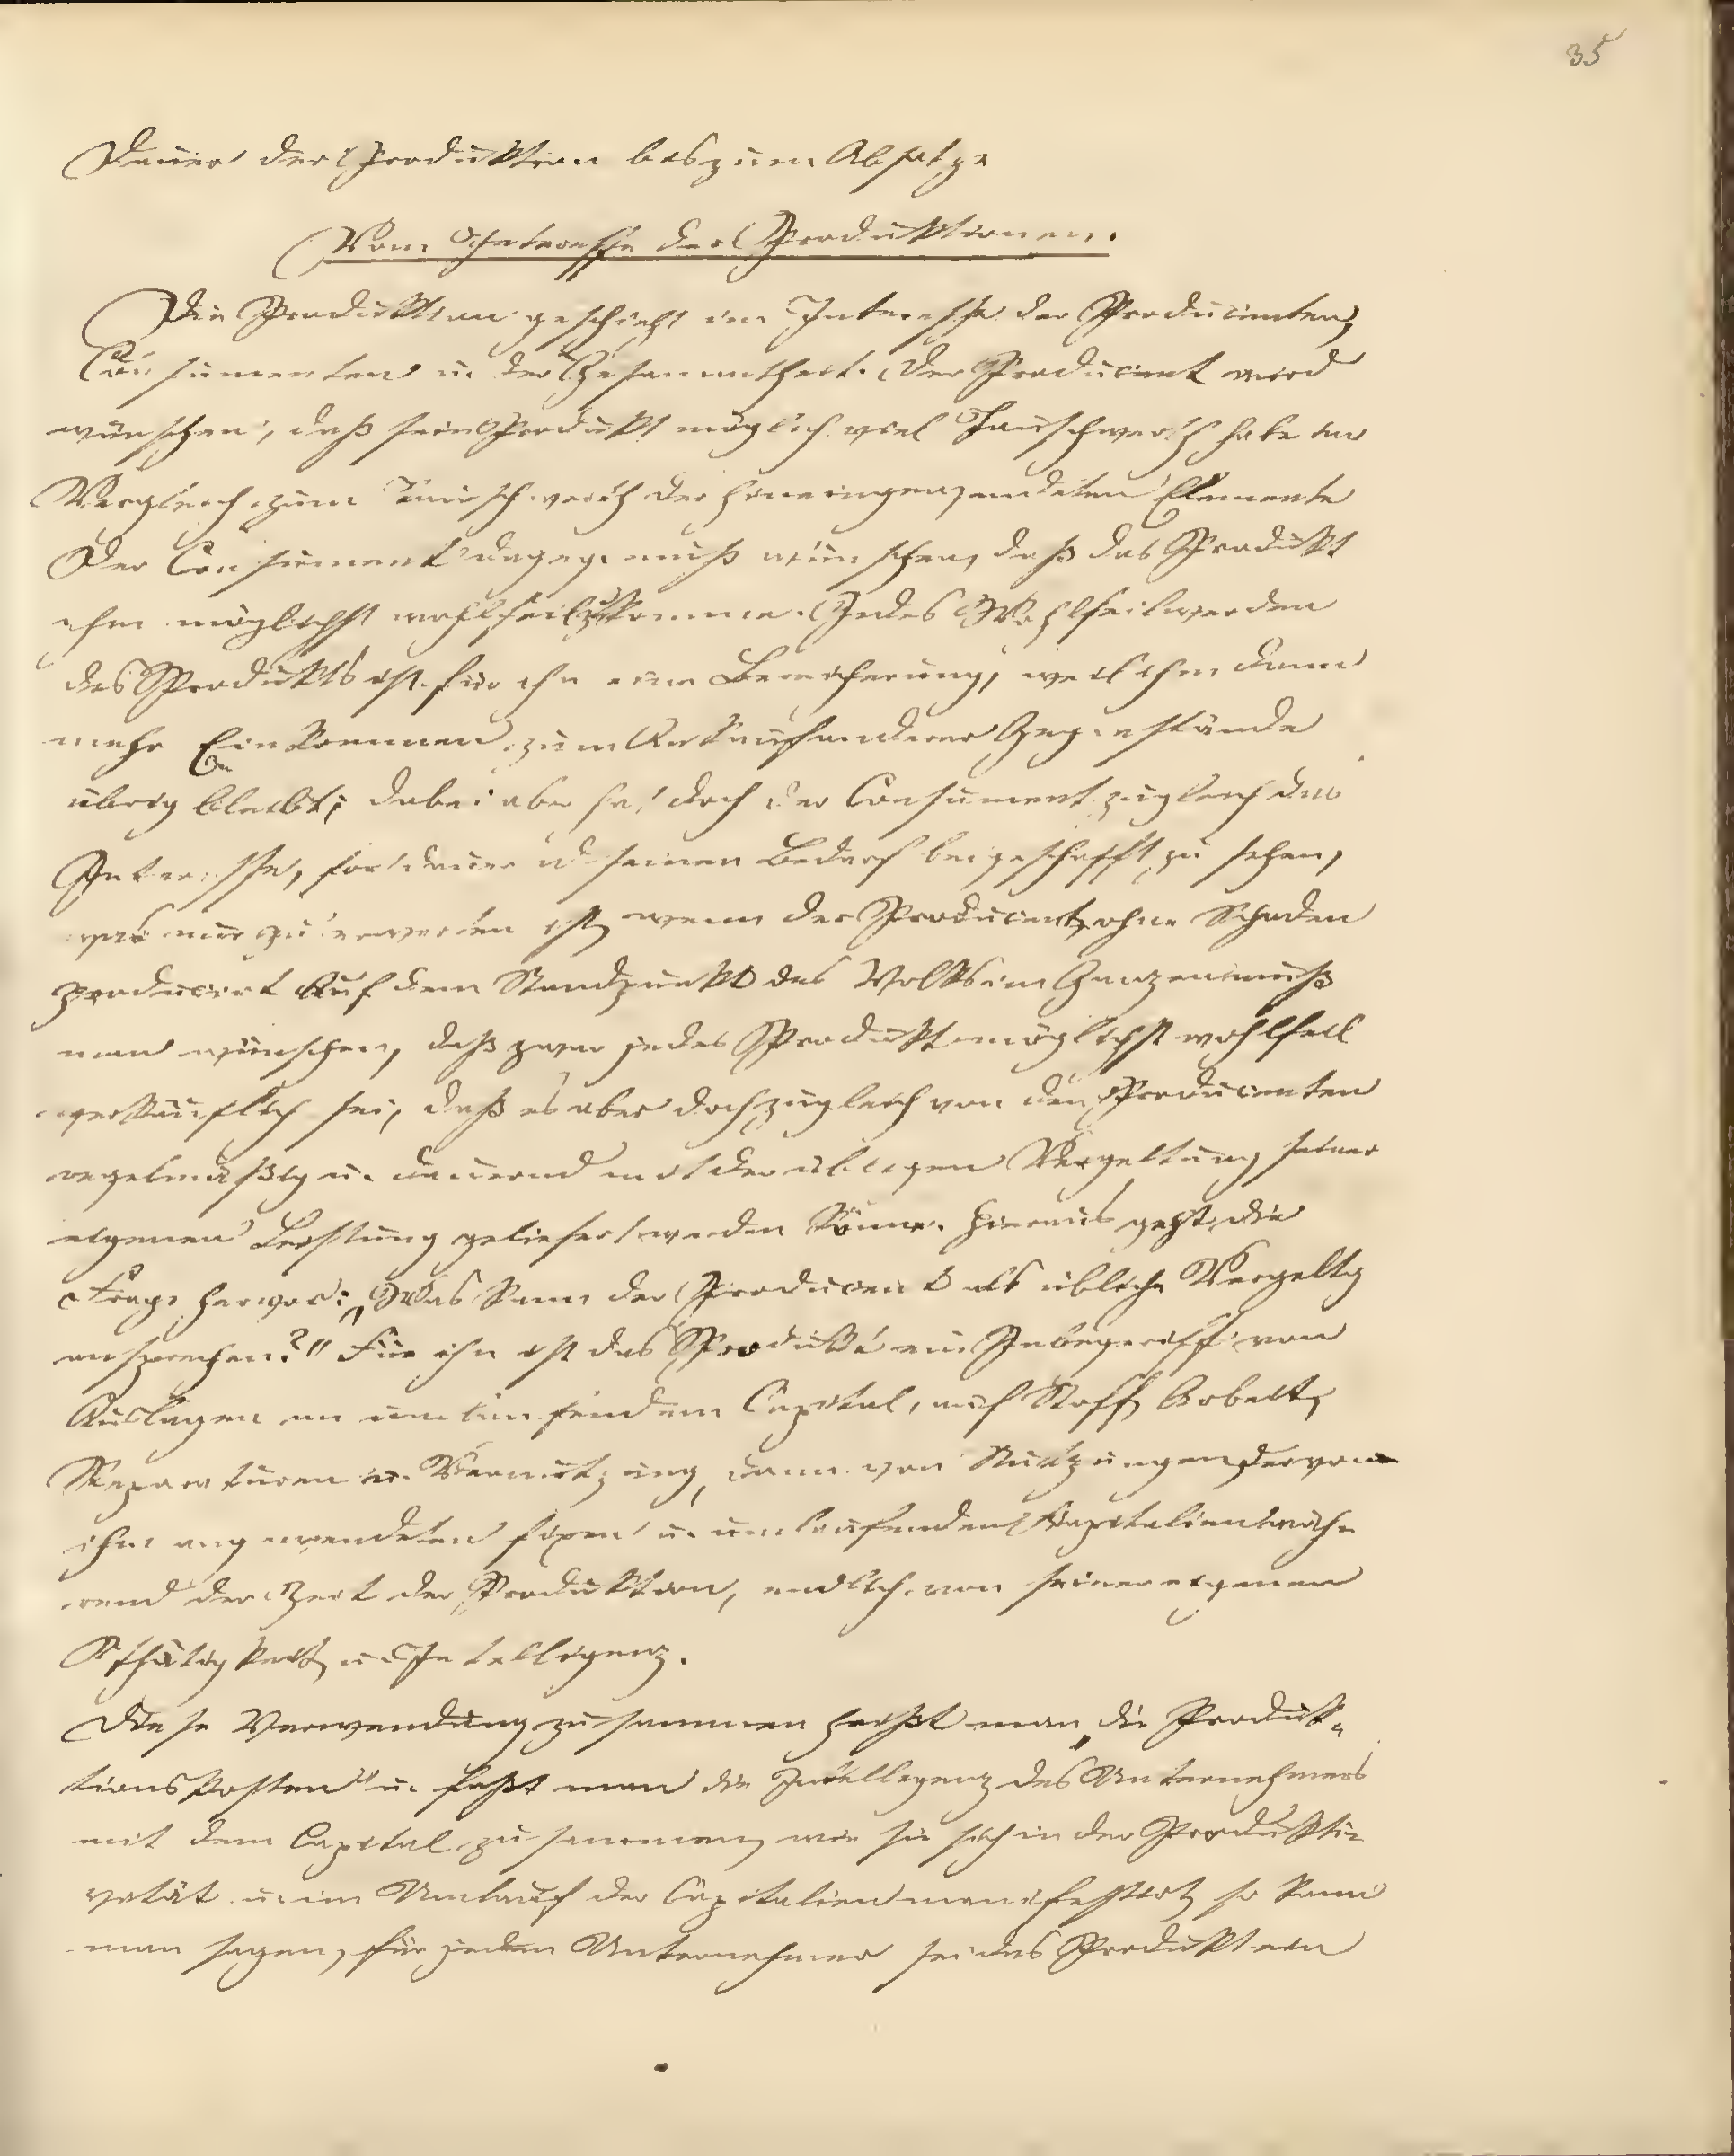 35
Dauer der Produktion bis zum Absatze
Vom Interesse der Produktionen.
Die Produktion geschieht im Interesse der Producenten,
Consumenten u. der Gesammtheit. Der Producent wird
wünschen, daß sein Produkt möglich. viel Tauschwerth habe im
Vergleich zum Tauschwerth der hineingewendeten Elemente
Der Consument dageg. muß wünschen, daß das Produkt
ihm möglichst wohlfeil zukomme. Jedes Wohlfeilwerden
des Produkts ist für ihn eine Bereicherung, weil ihm dann
mehr Einkommen zum Ankauf anderer Gegenstände
übrig bleibt; dabei aber hat doch der Consument zugleich das
Interesse, fortdauernd seinen Bedarf beigeschafft zu sehen,
was nur zu erwarten ist, wenn der Producent ohne Schaden
producirt Auf dem Standpunkt des Volks im Ganzen muß
man wünschen, daß zwar jedes Produkt möglichst wohlfeil
verkäuflich sei, daß es aber doch zugleich von den Producenten
regelmäßig u. dauernd mit der üblichen Vergeltung seiner
eigenen Leistung geliefert werden könne. Hieraus geht die
Frage hervor: „Was kann der Producent als übliche Vergeltg
ansprechen?" Für ihn ist das Produkt ein Inbegriff von
Auslagen an umlaufendem Capital, auf Stoff, Arbeit,
Reparaturen u. Vernutzung, dann von Nutzungen der von
ihm angewendeten fixen u. umlaufenden Kapitalien wäh
rend der Zeit der Produktion, endlich von seiner eigenen
Thätigkeit u. Intelligenz.
Diese Verwendung zusammen heißt man „die Produk-
tionskosten" u. faßt man die Intelligenz des Unternehmers
mit dem Capital zusammen, wie sie sich in der Produkti-
vität u. im Umlauf der Capitalien manifestirt, so kann
man sagen, für jeden Unternehmer sei das Produkt ein